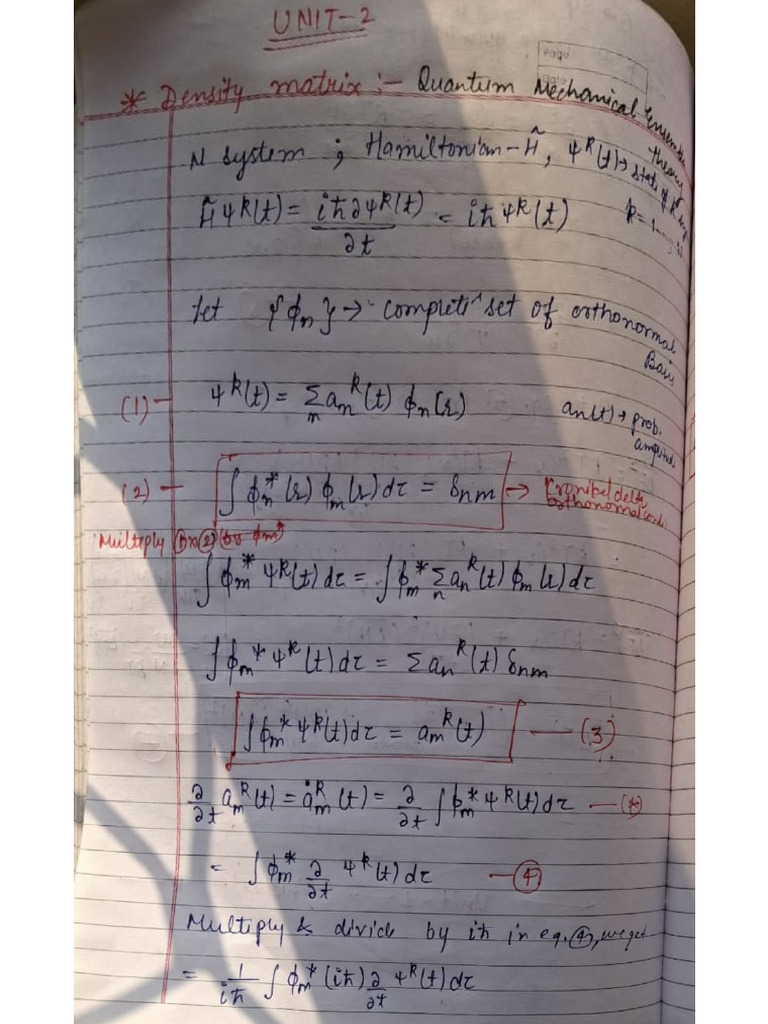 UNIT-2
Page
* Density matrix :- Quantum Mechanical Ensemble theory
N system ; Hamiltonian - Ĥ, ψᴷ(t) → state of K sys
k = 1....,
Ĥψᴷ(t) = iħ∂ψᴷ(t)/∂t = iħψᴷ(t)
Let {ϕn} → complete set of orthonormal Basis
(1) - ψᴷ(t) = Σₙ aₙᴷ(t) ϕₙ(r) an(t) → prob. amplitude
(2) - ∫ϕₙ*(r) ϕₘ(r)dτ = δnm →
Multiply
∫ϕₘ* ψᴷ(t)dτ = ∫ϕₘ* Σₙ aₙᴷ(t) ϕₘ(r)dτ
∫ϕₘ* ψᴷ(t)dτ = Σaₙᴷ(t) δnm
∫ϕₘ* ψᴷ(t)dτ = aₘᴷ(t) — (3)
∂/∂t aₘᴷ(t) = ȧₘᴷ(t) = ∂/∂t ∫ϕₘ* ψᴷ(t)dτ — (*)
= ∫ϕₘ* ∂/∂t ψᴷ(t)dτ — ④
Multiply & divide by iħ in eq. ④, we get
= 1/iħ ∫ϕₘ* (iħ) ∂/∂t ψᴷ(t)dτ